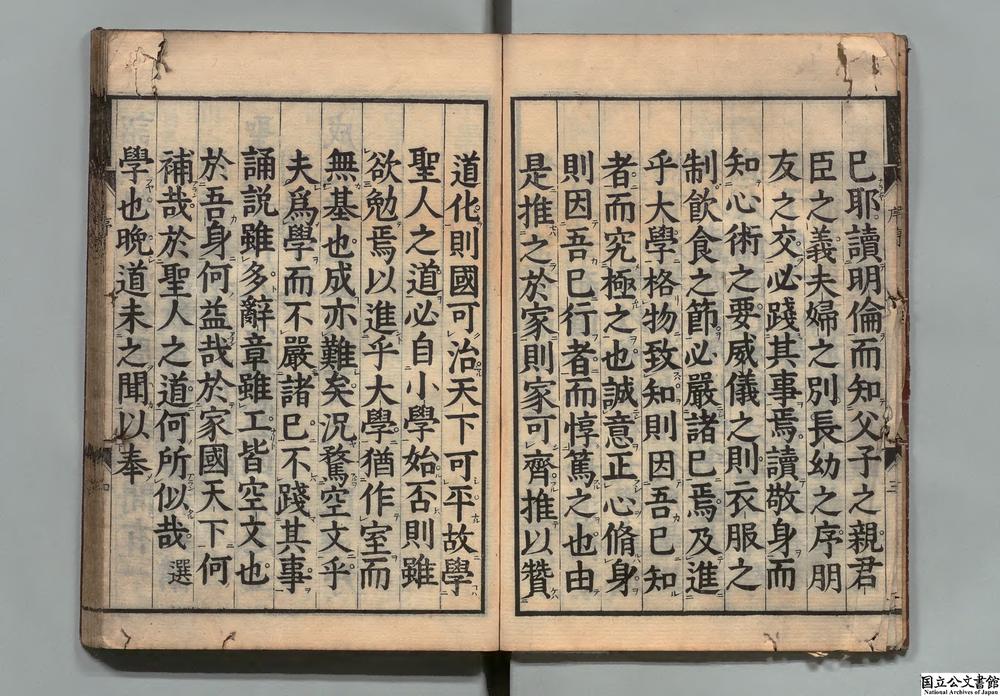 已耶讀明倫而知父子之親君
臣之義夫婦之別長幼之序朋
友之交必踐其事焉讀敬身而
知心術之要威儀之則衣服之
制飮食之節必嚴諸己焉及進
乎大學格物致知則因吾已知
者而究極之也誠意正心脩身
則因吾已行者而惇篤之也由
是推之於家則家可齊推以贊
道化則國可治天下可平故學
聖人之道必自小學始否則雖
欲勉焉以進乎大學猶作室而
無基也成亦難矣況騖空文乎
夫爲學而不嚴諸己不踐其事
誦説雖多辭章雖工皆空文也
於吾身何益哉於家國天下何
補哉於聖人之道何所似哉選
學也晩道未之聞以奉
国立公文書館
National Archives of Japan